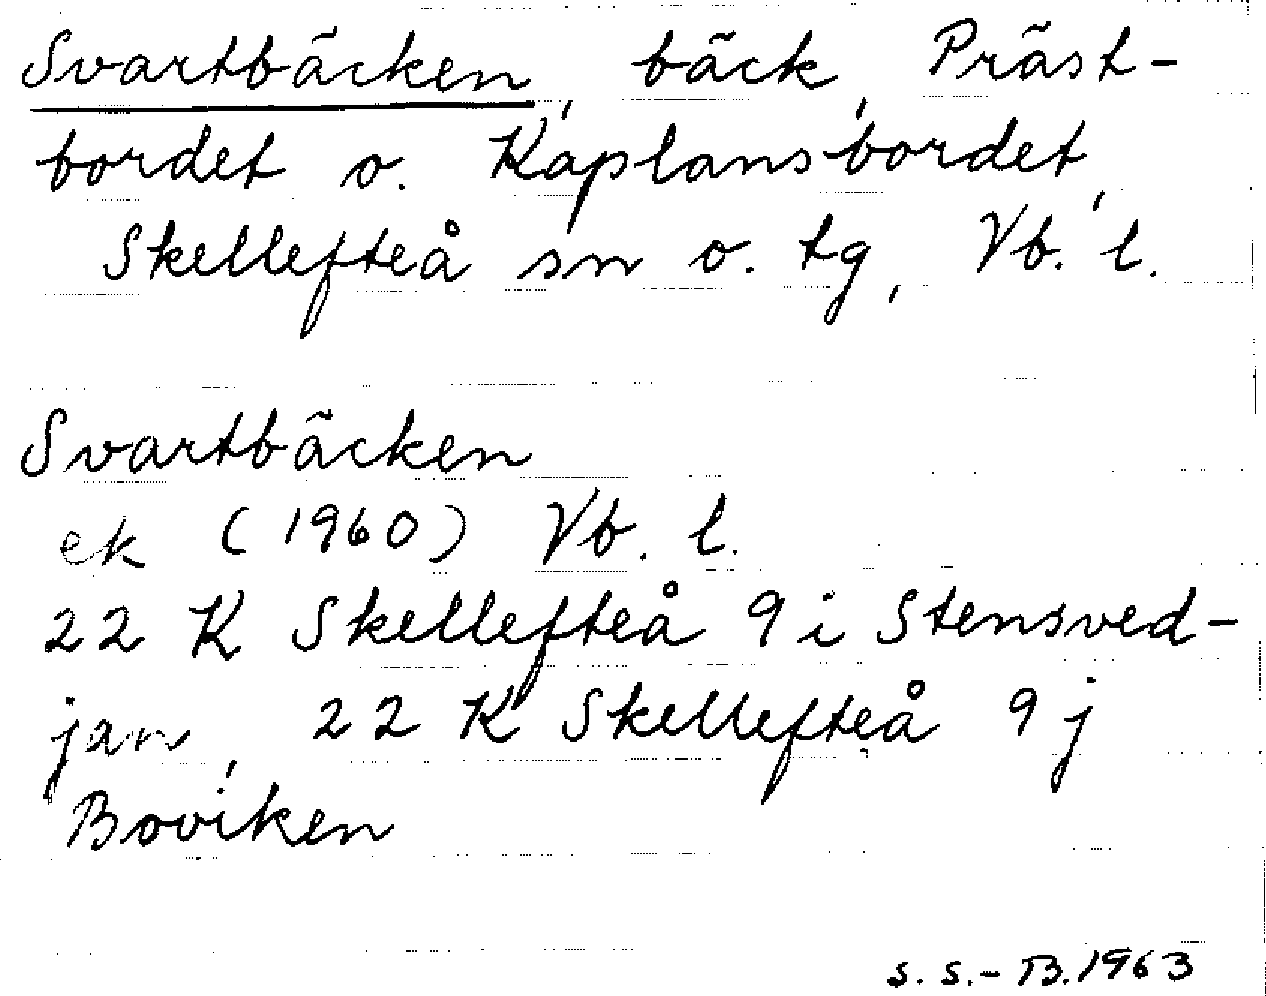 Svartbäcken, bäck, Präst-
bordet o. Kaplansbordet,
Skellefteå sn o. tg, Vb. l.
Svartbäcken
ek (1960) Vb. l.
22 K Skellefteå 9 i Stensved-
jan, 22 K Skellefteå 9 j
Boviken
S. S.-B. 1963